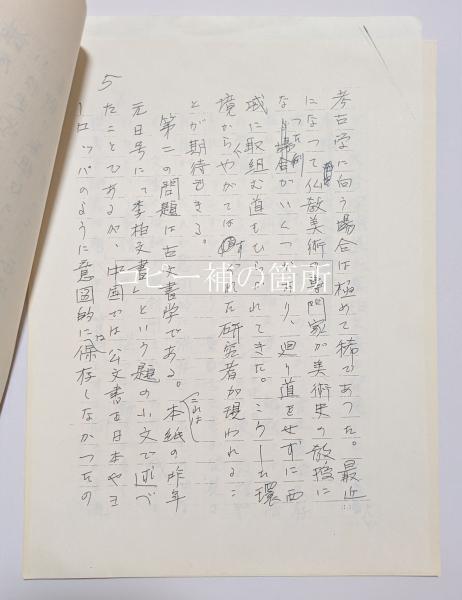 5
考古学に向う場合は極めて稀であつた。最近
になつて仏教美術の専門家が美術史の教授に
なつた例がいくつかあり、廻り道をせずに西
域に取組む道もひらかれてきた。こうした環
境からやがては すぐれた研究者が現われるこ
とが期待できる。
第二の問題は古文書学である。これは本紙の昨年
元日号に「李柏文書」という題の小文で述べ
たことであるが、中国では公文書を日本やヨ
ーロッパのように意図的に保存しなかつたの
コピー補の箇所